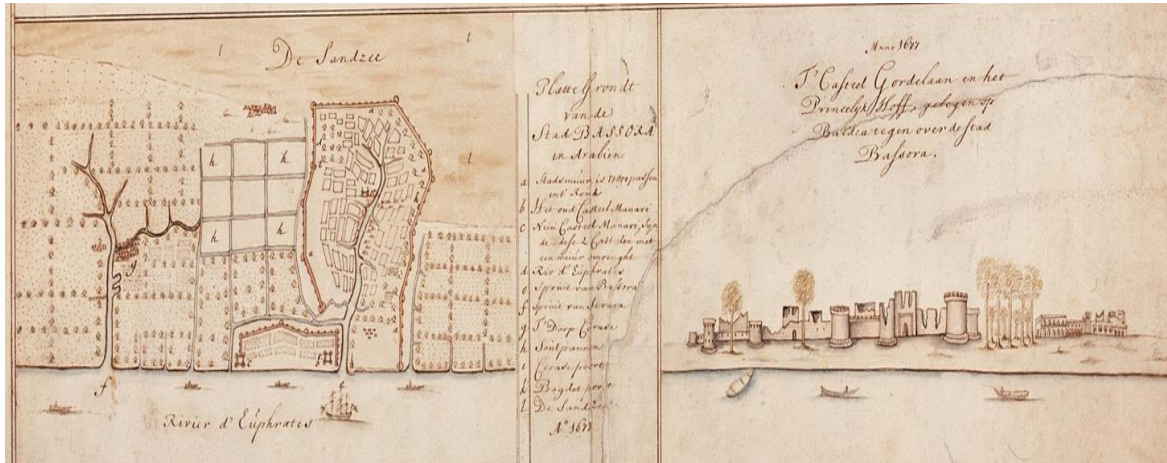 De Sandzee
l
l
l
h
h
h
h
g
f
e
c
b
Rivier d' Euphrates
Platte Grondt
van de
Stad BASSORA
in Arabien
a Stadsmuur, is passen
int Rond
b Het oud Casteel Manari
c Nieu Casteel Manari, zyn
de dese 2 Casteelen met
een muur omringht
d Rivr d' Euphrates
e Spruit van Bassora
f Spruit van
g T' Dorp
h Soutpannen
i poort
k Bagdet poort
l De Sandzee
A° 1677
Anno 1677
T' Casteel Gordelaan en het
Princelyk Hoff, gelegen op
tegen over de stad
Bassora.